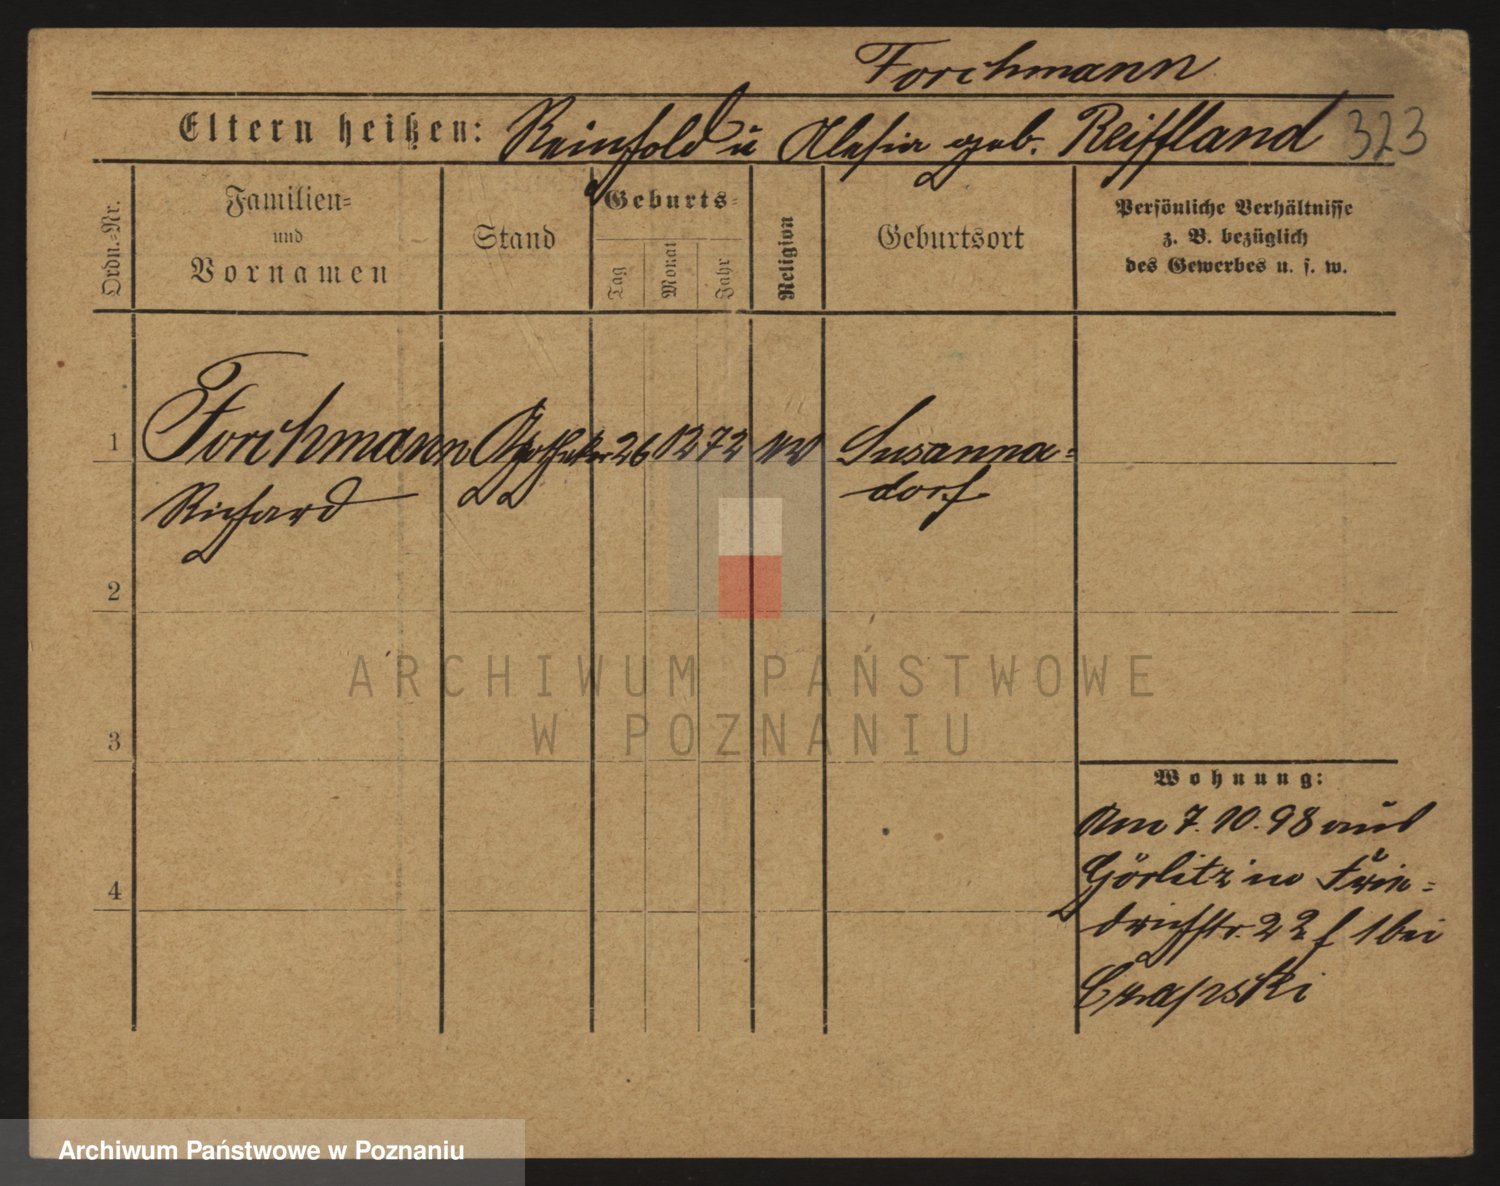 Forchmann
Eltern heißen: Reinhold u geb. Reiffland 323
Ordn.-Nr.
Familien-
und
Vornamen
Stand
Geburts-
Tag
Monat
Jahr
Religion
Geburtsort
Persönliche Verhältnisse
z. B. bezüglich
des Gewerbes u. s. w.
1 Forchmann Apotheker 26 12 72 Susanna=
Richard dorf
2
3
4
Wohnung:
Am 7.10.98 aus
Görlitz in Frie=
drichstr. 22 f 1 bei
Czapski
ARCHIWUM PAŃSTWOWE
W POZNANIU
Archiwum Państwowe w Poznaniu